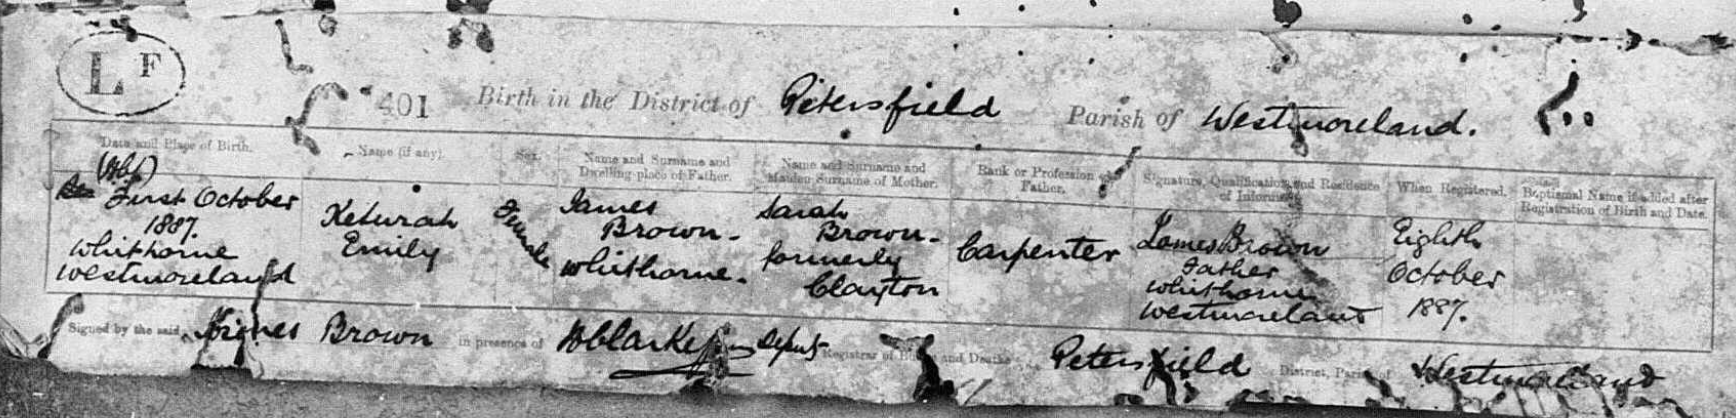 L F
401 Birth in the District of Petersfield Parish of Westmoreland.
Date and Place of Birth. Name (if any). Sex. Name and Surname and Dwelling-place of Father. Name and Surname and Maiden Surname of Mother. Rank or Profession of Father. Signature, Qualification, and Residence of Informant. When Registered. Baptismal Name if added after Registration of Birth and Date.
First October
1887.
Whithorne
Westmoreland
Keturah
Emily
Female
James
Brown-
Whithorne.
Sarah
Brown-
formerly
Clayton
Carpenter
James Brown
Father
Whithorne
Westmoreland
Eighth
October
1887.
Signed by the said James Brown in presence of Deputy Registrar of Births and Deaths Petersfield District, Parish of Westmoreland